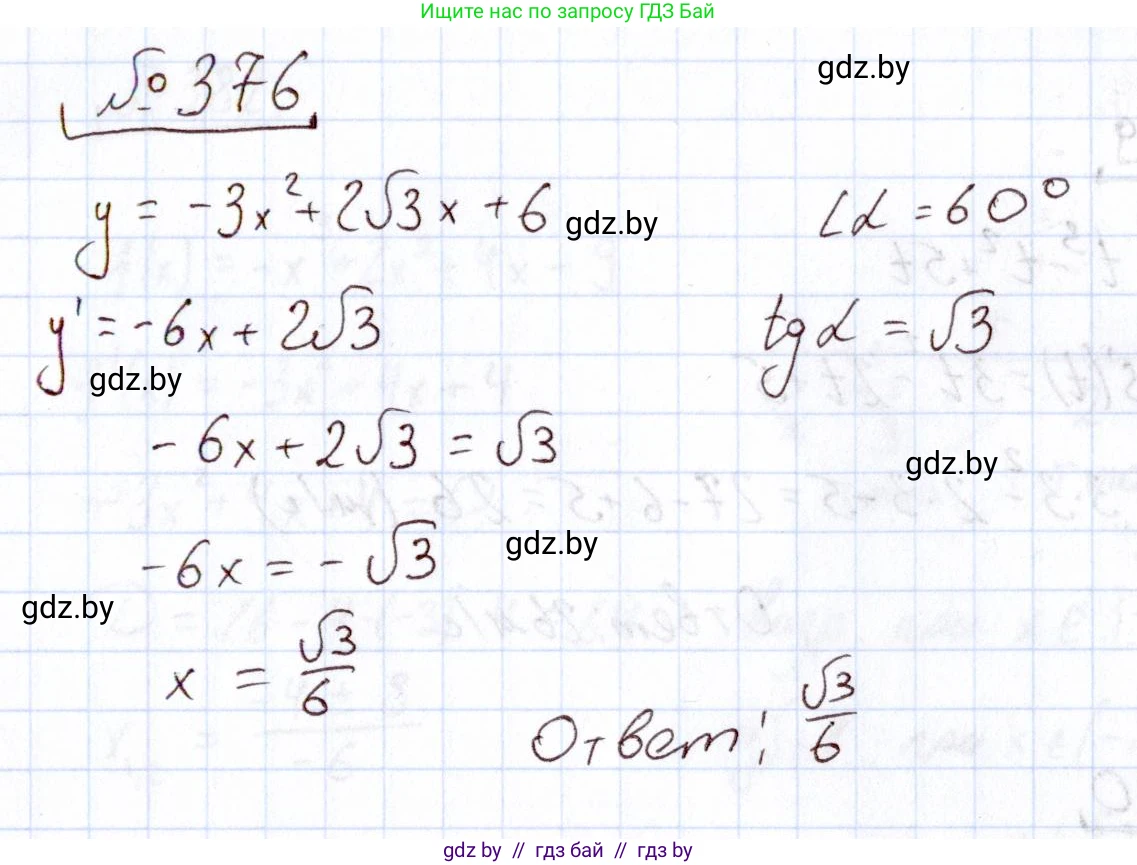 Ищите нас по запросу ГДЗ Бай
№ 376
gdz.by
y = -3x² + 2√3 x + 6
gdz.by
∠α = 60°
y' = -6x + 2√3
tg α = √3
gdz.by
-6x + 2√3 = √3
gdz.by
-6x = -√3
gdz.by
gdz.by
x = √3/6
Ответ: √3/6
gdz by // гдз бай // гдз by